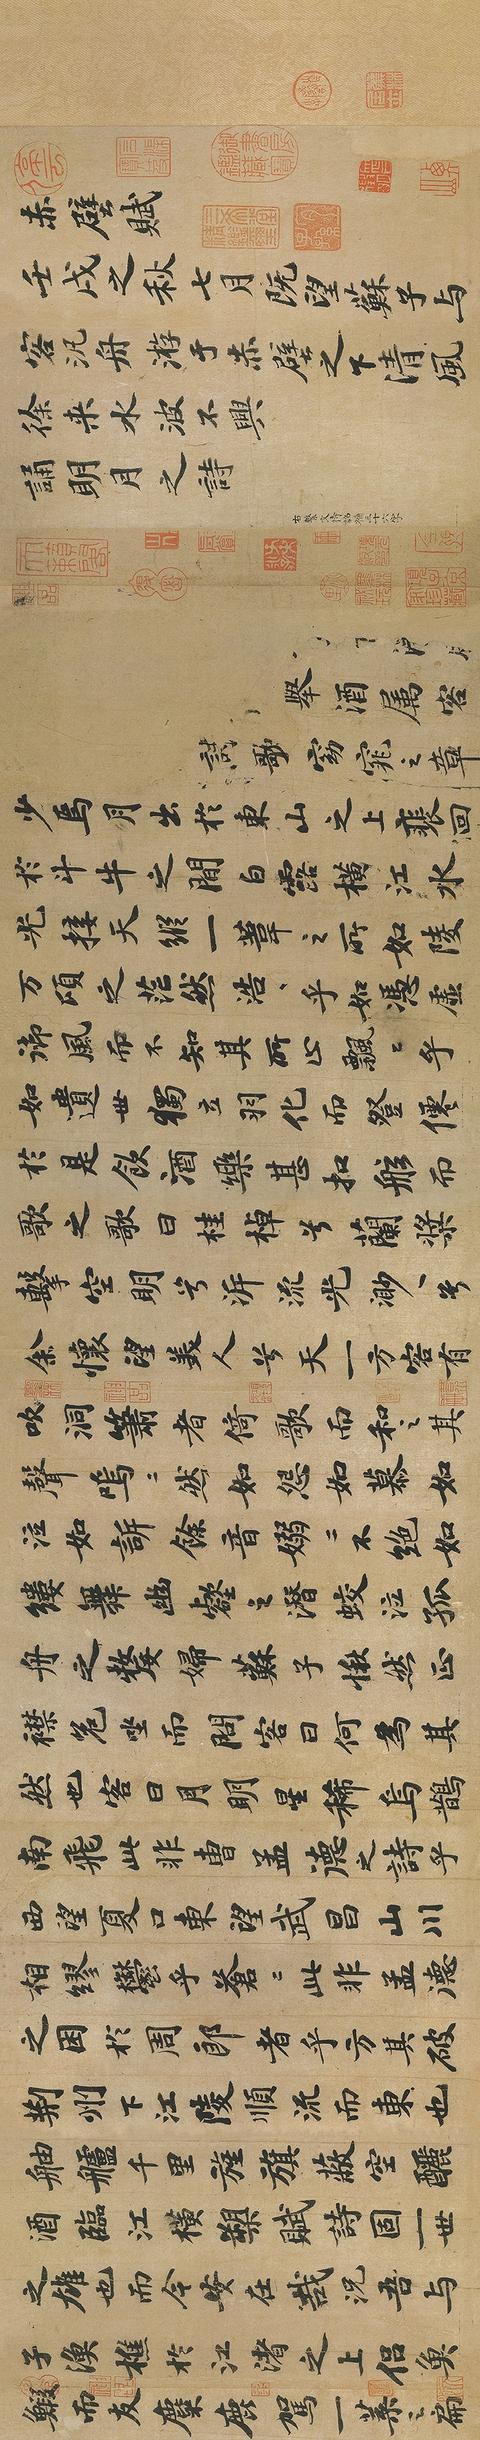 赤壁賦
壬戌之秋七月既望蘇子与
客泛舟游于赤壁之下清風
徐来水波不興
誦明月之詩
右繫文待詔補三十六字
舉酒属客
歌窈窕之章
少焉月出於東山之上裴回
於斗牛之間白露橫江水
光接天縱一葦之所如陵
万頃之茫然浩〻乎如馮虛
御風而不知其所止飄〻乎
如遺世獨立羽化而登僊
於是飲酒樂甚扣舷而
歌之歌曰桂棹兮蘭槳
擊空明兮泝流光渺〻兮
余懷望美人兮天一方客有
吹洞簫者倚歌而和之其
聲嗚〻然如怨如慕如
泣如訴餘音嫋〻不絕如
縷舞幽壑之潛蛟泣孤
舟之嫠婦蘇子愀然正
襟危坐而問客曰何為其
然也客曰月明星稀烏鵲
南飛此非曹孟德之詩乎
西望夏口東望武昌山川
相繆鬱乎蒼〻此非孟德
之困於周郎者乎方其破
荆州下江陵順流而東也
舳艫千里旌旗蔽空釃
酒臨江橫槊賦詩固一世
之雄也而今安在哉況吾与
子漁樵於江渚之上侶魚
鰕而友麋鹿駕一葉之扁